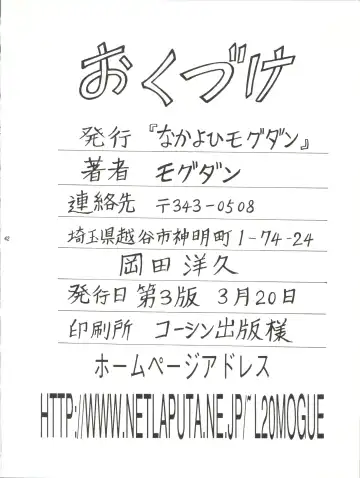 おくづけ
発行 『なかよひモグダン』
著者 モグダン
連絡先 〒343-0508
埼玉県越谷市神明町1-74-24
岡田洋久
発行日 第3版 3月20日
印刷所 コーシン出版様
ホームページアドレス
HTTP://WWW.NETLAPUTA.NE.JP/~L20MOGUE
42